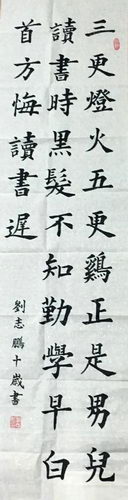 三更燈火五更鷄正是男兒
讀書時黑髮不知勤學早白
首方悔讀書遲
劉志鵬十歲書